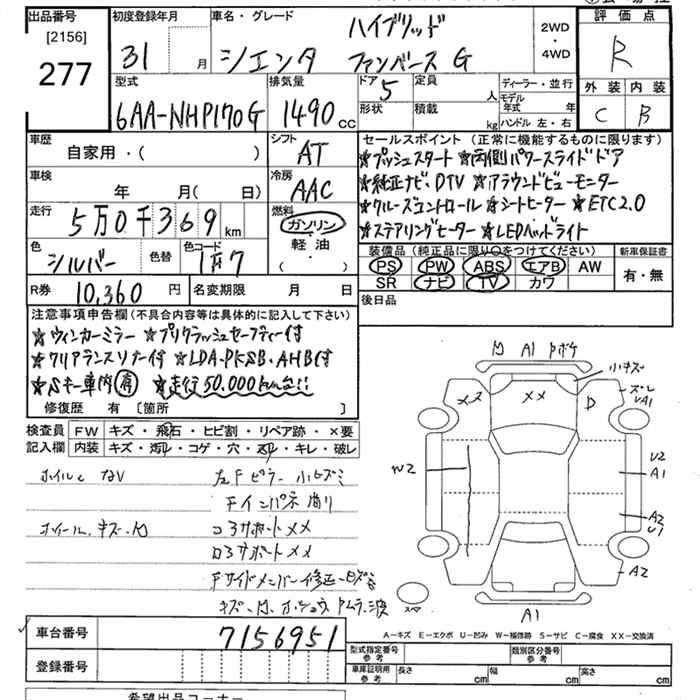 出品番号
[2156]
277
初度登録年月
31 月
車名・グレード
ハイブリッド
シエンタ ファンベース G
2WD
・
4WD
評価点
R
外装 内装
C B
型式
6AA-NHP170G
排気量
1490 cc
ドア 5
定員 人
形状
積載 kg
ディーラー・並行
モデル年式 年
ハンドル 左・右
車歴
自家用・( )
シフト
AT
車検
年 月( 日)
冷房
AAC
走行
5万0千369 km
燃料
ガソリン
・
軽油
・
( )
色
シルバー
色替
色コード
1F7
R券 10,360 円
名変期限 月 日
セールスポイント (正常に機能するものに限ります)
★プッシュスタート ★両側パワースライドドア
★純正ナビ、DTV ★アラウンドビューモニター
★クルーズコントロール ★シートヒーター ★ETC2.0
★ステアリングヒーター ★LEDヘッドライト
装備品 (純正品に限り○をつけてください)
新車保証書
PS PW ABS エアB AW
SR ナビ TV カワ
有・無
後日品
注意事項申告欄(不具合内容等は具体的に記入して下さい)
★ウィンカーミラー ★プリクラッシュセーフティー付
★クリアランスソナー付 ★LDA、PKSB、AHB付
★Sキー車内有 ★走行50,000km台!!
修復歴 有 [箇所 ]
検査員
記入欄
FW キズ・飛石・ヒビ割・リペア跡・×要
内装 キズ・汚レ・コゲ・穴・スレ・キレ・破レ
左Fピラー 小ヒズミ
Fインパネ 曲り
ホイール、キズ、凹
コアサポート メメ
ロアサポート メメ
Fサイドメンバー 修正
凹 A1 Pボケ
小キズ
メメ メメ D
ズレ
UA1
W2
U2
A1
A2
U1
A2
スペ
A1
車台番号 7156951
登録番号
A-キズ E-エクボ U-凹み W-補修跡 S-サビ C-腐食 XX-交換済
型式指定番号
参考
類別区分番号
参考
車庫証明用
参考
長さ cm 幅 cm 高さ cm
希望出品コーナー